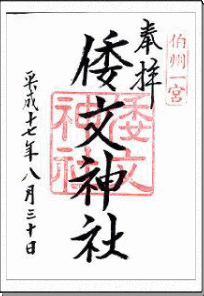 伯州一宮
奉拝
倭文神社
倭文神社
平成十七年八月三十日